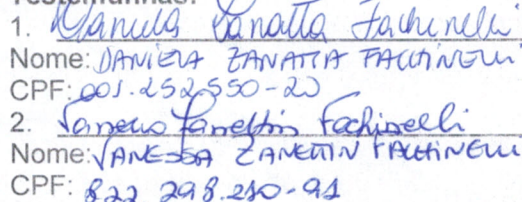 Testemunhas:
1. Daniela Zanatta Fachinelli
Nome: DANIELA ZANATTA FACHINELLI
CPF: 001.252.550-20
2. Vanessa Zanettin Fachinelli
Nome: VANESSA ZANETTIN FACHINELLI
CPF: 822 298.210-91